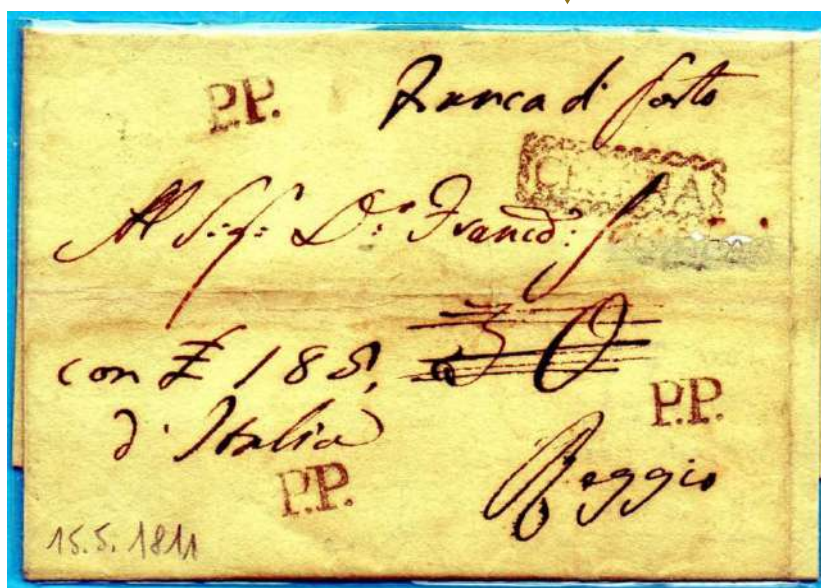 P.P. Franca di Porto
Al Sig: D:r Franco:
con £ 188, 30
d'Italia P.P.
P.P. Reggio
15.5.1811